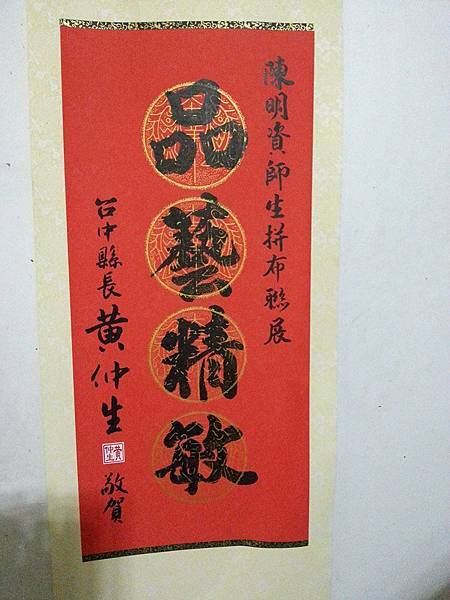 陳明資師生拼布聯展
品藝精敏
台中縣長黃仲生
黃仲生
敬賀